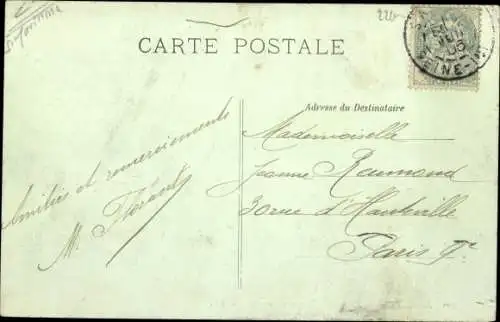 220
CARTE POSTALE
Adresse du Destinataire
Amitiés et remerciements
M.
Mademoiselle
Jeanne Raumond
30 rue d'Hauteville
Paris
SEINE